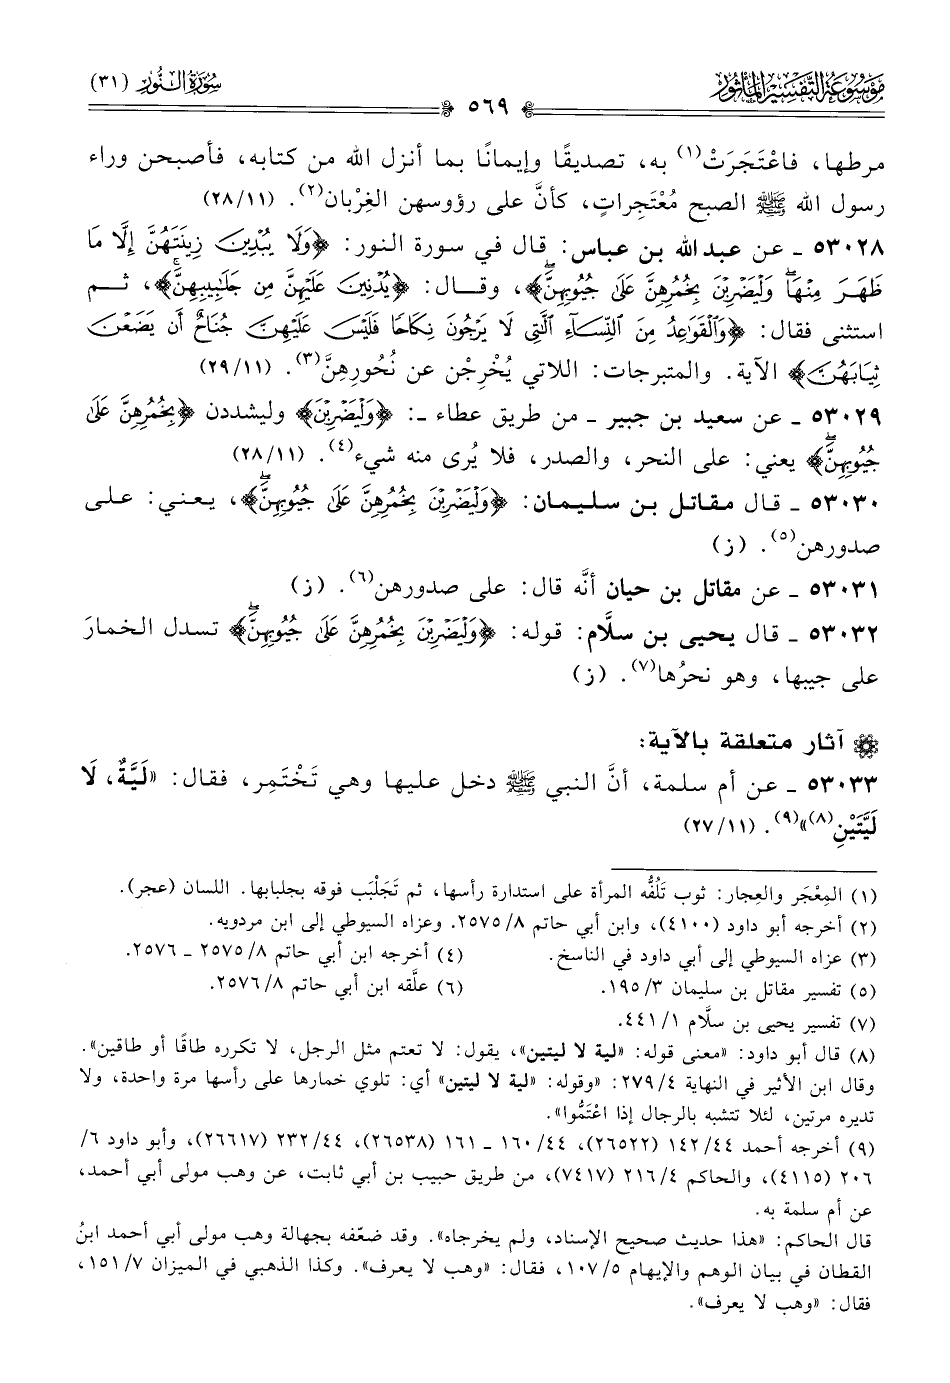 موسوعة التفسير المأثور
سورة النور (٣١)
٥٦٩
مرطها، فاعْتَجَرَتْ(١) به، تصديقًا وإيمانًا بما أنزل الله من كتابه، فأصبحن وراء
رسول الله ﷺ الصبح مُعْتَجِراتٍ، كأنَّ على رؤوسهن الغِرْبان(٢). (٢٨/١١)
٥٣٠٢٨ ـ عن عبد الله بن عباس: قال في سورة النور: ﴿وَلَا يُبْدِينَ زِينَتَهُنَّ إِلَّا مَا
ظَهَرَ مِنْهَاۖ وَلْيَضْرِبْنَ بِخُمُرِهِنَّ عَلَىٰ جُيُوبِهِنَّۖ﴾، وقال: ﴿يُدْنِينَ عَلَيْهِنَّ مِن جَلَٰبِيبِهِنَّۚ﴾، ثم
استثنى فقال: ﴿وَالْقَوَٰعِدُ مِنَ النِّسَآءِ الَّٰتِى لَا يَرْجُونَ نِكَاحًا فَلَيْسَ عَلَيْهِنَّ جُنَاحٌ أَن يَضَعْنَ
ثِيَابَهُنَّ﴾ الآية. والمتبرجات: اللاتي يُخْرِجْن عن نُحُورِهِنَّ(٣). (٢٩/١١)
٥٣٠٢٩ ـ عن سعيد بن جبير ـ من طريق عطاء ـ: ﴿وَلْيَضْرِبْنَ﴾ وليشددن ﴿بِخُمُرِهِنَّ عَلَىٰ
جُيُوبِهِنَّۖ﴾ يعني: على النحر، والصدر، فلا يُرى منه شيء(٤). (٢٨/١١)
٥٣٠٣٠ ـ قال مقاتل بن سليمان: ﴿وَلْيَضْرِبْنَ بِخُمُرِهِنَّ عَلَىٰ جُيُوبِهِنَّۖ﴾، يعني: على
صدورهن(٥). (ز)
٥٣٠٣١ ـ عن مقاتل بن حيان أنَّه قال: على صدورهن(٦). (ز)
٥٣٠٣٢ ـ قال يحيى بن سلَّام: قوله: ﴿وَلْيَضْرِبْنَ بِخُمُرِهِنَّ عَلَىٰ جُيُوبِهِنَّۖ﴾ تسدل الخمارَ
على جيبها، وهو نحرُها(٧). (ز)
آثار متعلقة بالآية:
٥٣٠٣٣ ـ عن أم سلمة، أنَّ النبي ﷺ دخل عليها وهي تَخْتَمِر، فقال: «لَيَّةً، لَا
لَيَّتَيْنِ(٨)»(٩). (٢٧/١١)
(١) المِعْجَر والعِجار: ثوب تَلُفُّه المرأة على استدارة رأسها، ثم تَجَلْبَب فوقه بجلبابها. اللسان (عجر).
(٢) أخرجه أبو داود (٤١٠٠)، وابن أبي حاتم ٨/ ٢٥٧٥. وعزاه السيوطي إلى ابن مردويه.
(٣) عزاه السيوطي إلى أبي داود في الناسخ. (٤) أخرجه ابن أبي حاتم ٨/ ٢٥٧٥ ـ ٢٥٧٦.
(٥) تفسير مقاتل بن سليمان ٣/ ١٩٥. (٦) علَّقه ابن أبي حاتم ٨/ ٢٥٧٦.
(٧) تفسير يحيى بن سلَّام ١/ ٤٤١.
(٨) قال أبو داود: «معنى قوله: «لية لا ليتين»، يقول: لا تعتم مثل الرجل، لا تكرره طاقًا أو طاقين».
وقال ابن الأثير في النهاية ٤/ ٢٧٩: «وقوله: «لية لا ليتين» أي: تلوي خمارها على رأسها مرة واحدة، ولا
تديره مرتين، لئلا تتشبه بالرجال إذا اعْتَمُّوا».
(٩) أخرجه أحمد ٤٤/ ١٤٢ (٢٦٥٢٢)، ٤٤/ ١٦٠ ـ ١٦١ (٢٦٥٣٨)، ٤٤/ ٢٣٢ (٢٦٦١٧)، وأبو داود ٦/
٢٠٦ (٤١١٥)، والحاكم ٤/ ٢١٦ (٧٤١٧)، من طريق حبيب بن أبي ثابت، عن وهب مولى أبي أحمد،
عن أم سلمة به.
قال الحاكم: «هذا حديث صحيح الإسناد، ولم يخرجاه». وقد ضعّفه بجهالة وهب مولى أبي أحمد ابنُ
القطان في بيان الوهم والإيهام ٥/ ١٠٧، فقال: «وهب لا يعرف». وكذا الذهبي في الميزان ٧/ ١٥١،
فقال: «وهب لا يعرف».